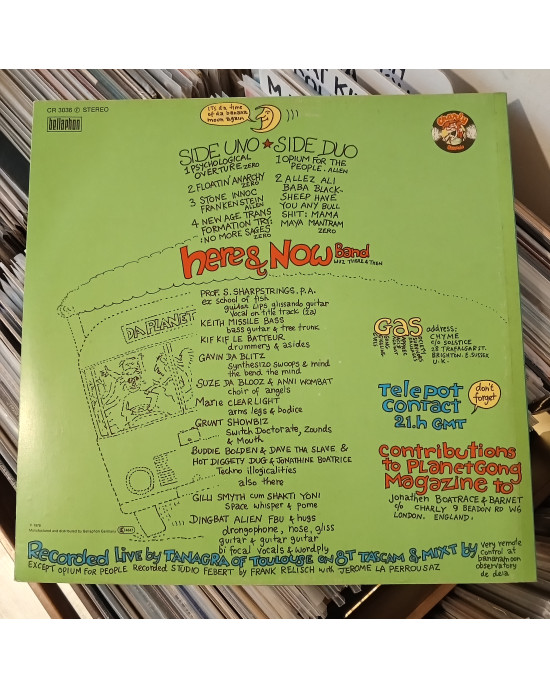 CR 3038 Ⓟ STEREO
bellaphon
it's da time
of da banana
moon again
Charly
SIDE UNO ★ SIDE DUO
1 PSYCHOLOGICAL
OVERTURE ZERO
2 FLOATIN' ANARCHY
ZERO
3 STONE INNOC
FRANKENSTEIN
ALLEN
4 NEW AGE TRANS
FORMATION TRY:
NO MORE SAGES
ZERO
1 OPIUM FOR THE
PEOPLE. ALLEN
2 ALLEZ ALI
BABA BLACK-
SHEEP HAVE
YOU ANY BULL
SHIT: MAMA
MAYA MANTRAM
ZERO
here & Now Band
wuz THERE & THEN
DA PLANET
PROF. S. SHARPSTRINGS. P.A.
ex school of fish
guitar lips glissando guitar
vocal on title track (2a)
KEITH MISSILE BASS
bass guitar & tree trunc
KIF KIF LE BATTEUR
drummery & asides
GAVIN DA BLITZ
Synthesizo swoops & mind
the bend the mind
SUZE DA BLOOZ & ANNI WOMBAT
choir of angels
Marie CLEARLIGHT
arms legs & bodice
GRUNT SHOWBIZ
Switch Doctorate, Zounds
& Mouth
BUDDIE BOLDEN & DAVE THA SLAVE &
HOT DIGGETY DUG & JONATHINE BOATRICE
Techno illogicalities
also there
GILLI SMYTH cum SHAKTI YONI
Space whisper & pome
DINGBAT ALIEN FBU & hugs
drongophone, nose, gliss
guitar & guitar guitar
bi focal vocals & wordply
GAS
address:
CHYME
c/o SOLSTICE
28 TRAFALGAR ST.
BRIGHTON. E. SUSSEX
U.K.
Telepot
contact
21.h GMT
don't
forget
contributions
to PlanetGong
Magazine to
jonathen BOATRACE & BARNET
c/o CHARLY 9 BEADON RD W6
LONDON. ENGLAND.
Ⓟ 1978
Manufactured and distributed by Bellaphon Germany
Recorded live by TANAGRA OF TOULOUSE on 8T TASCAM & MIXT by
very remote
control at
bananamoon
observatory
de deia
EXCEPT OPIUM FOR PEOPLE RECORDED STUDIO FEBERT by FRANK RELISCH with JEROME LA PERROUSAZ